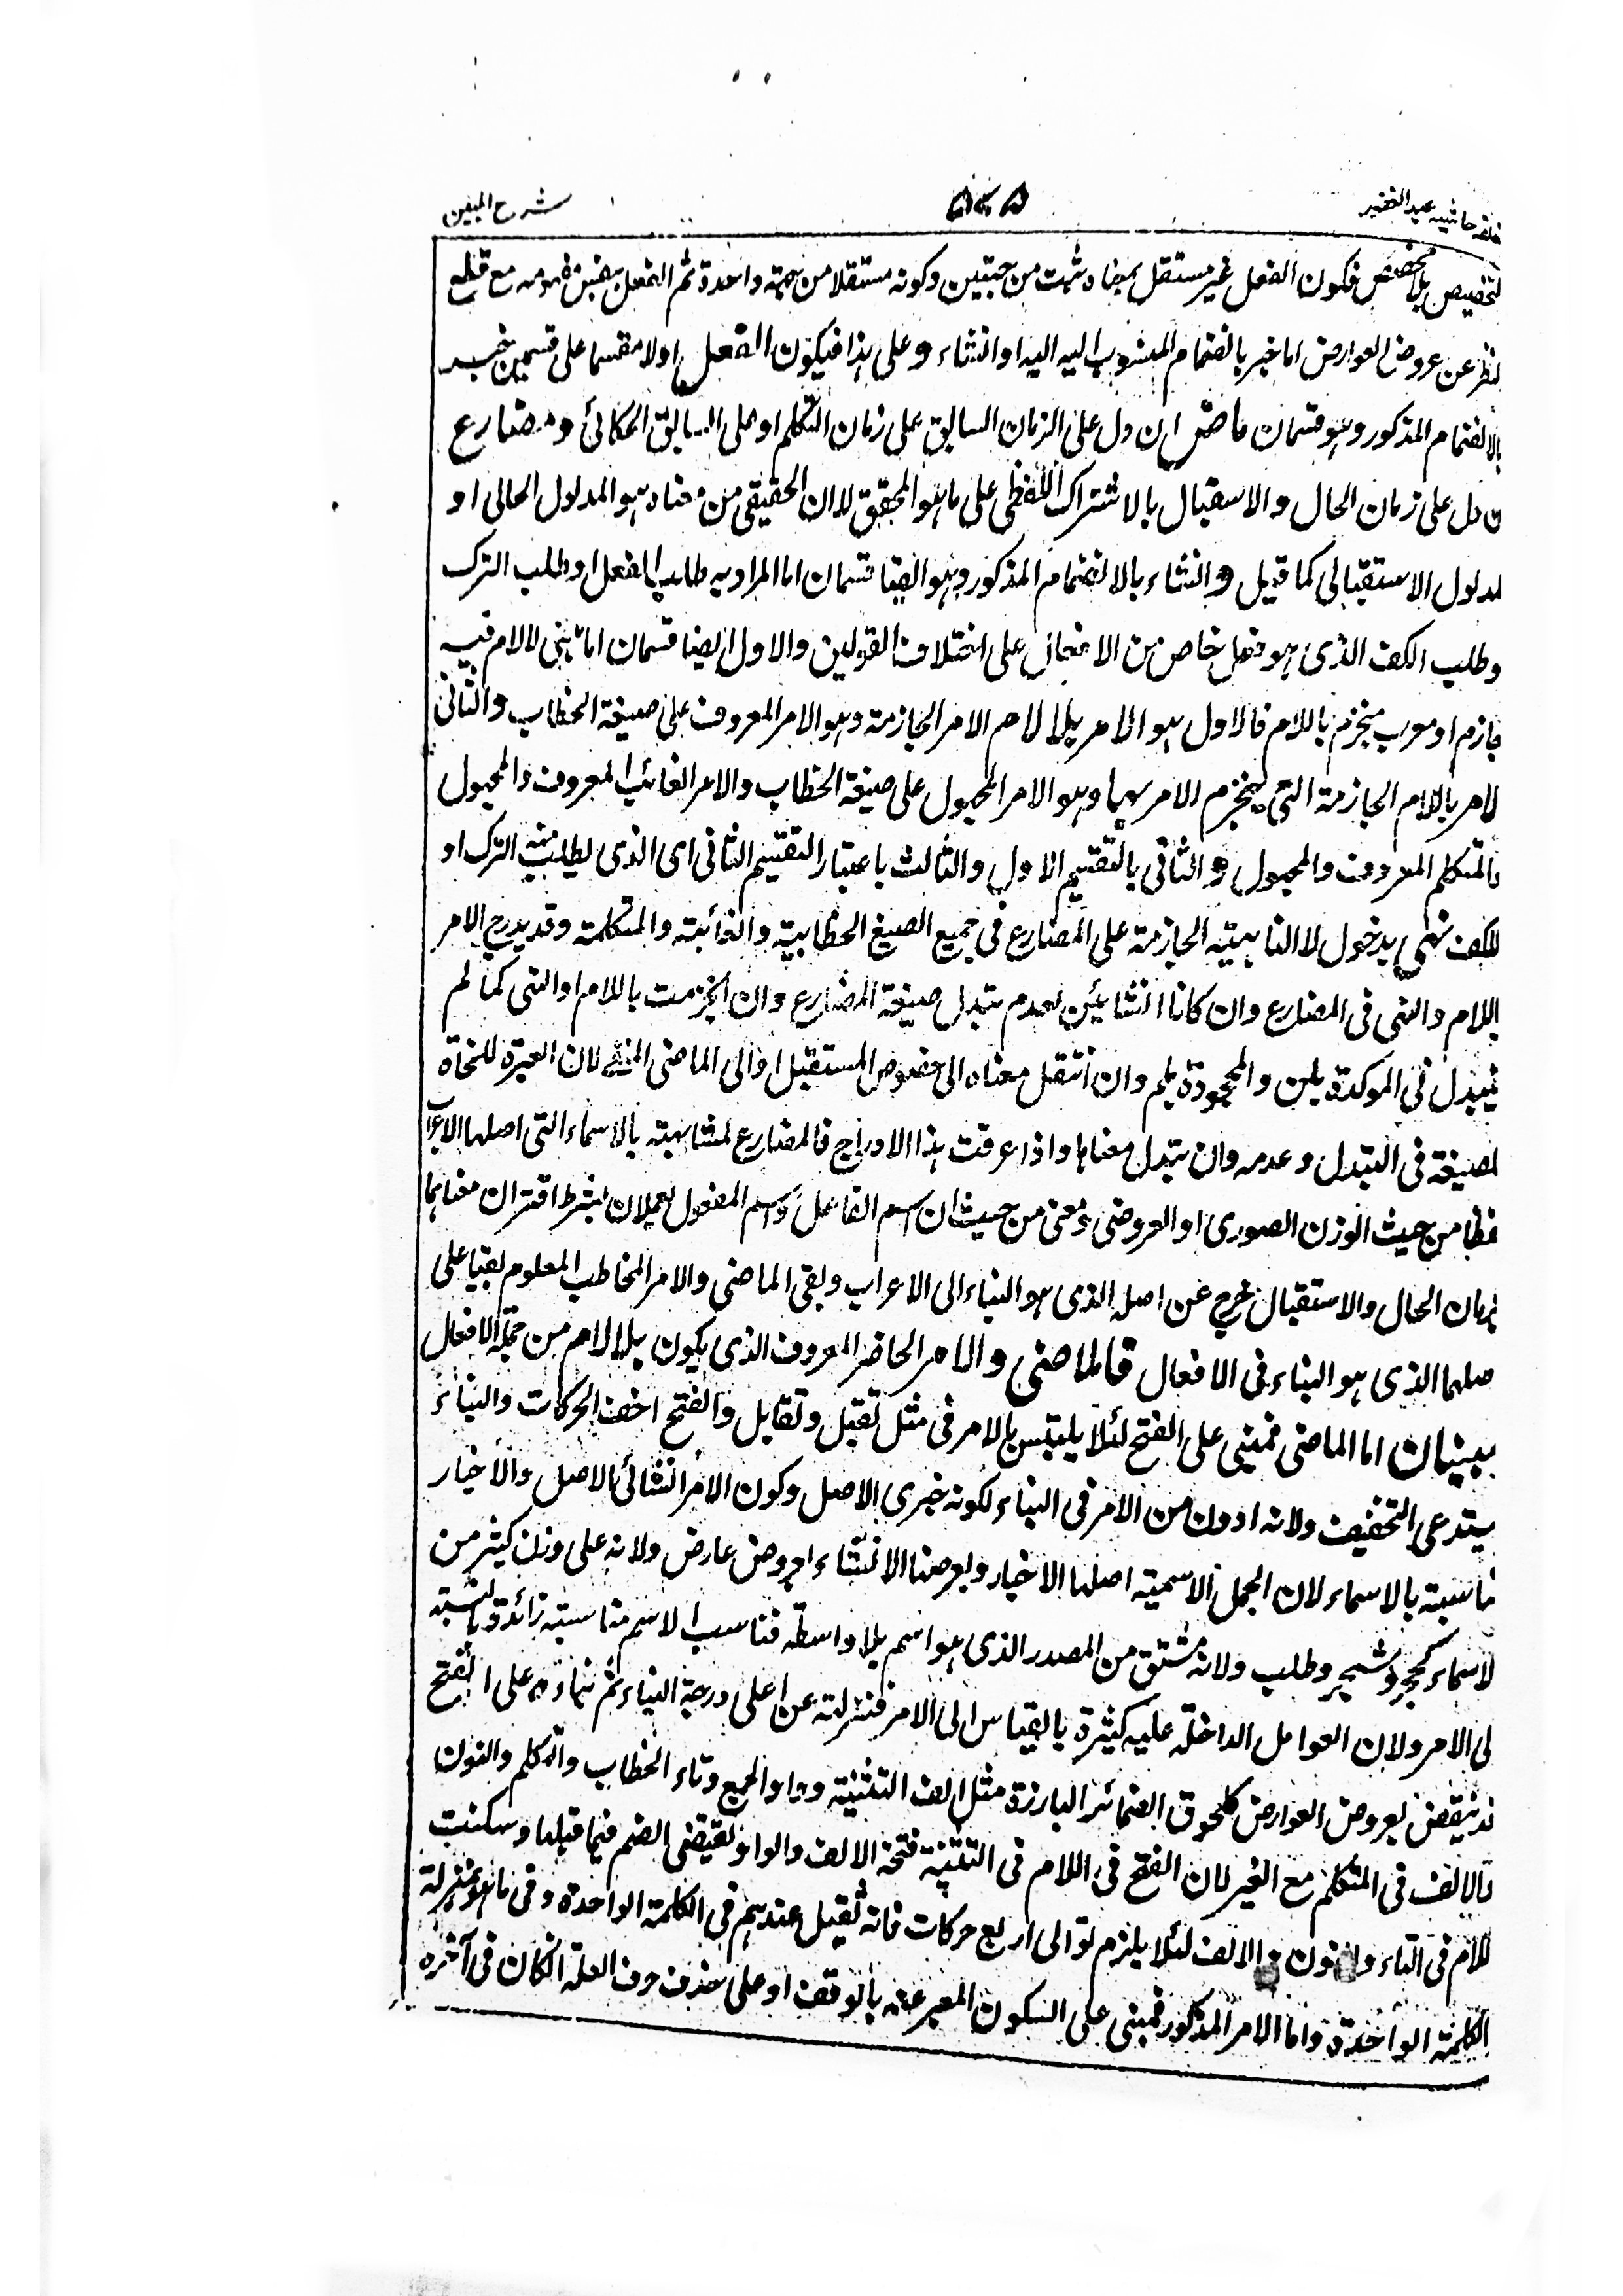 حاشيه عبد الغفير
شرح المبين
تخصيص بلا مخصص فكون الفعل غير مستقل بمعناه ثبت من جهتين وكونه مستقلا من جهة واحدة ثم الفعل بنفس مفهومه مع قطع
النظر عن عروض العوارض اما خبر بانضمام المنسوب اليه اليه او انشاء وعلى هذا فيكون الفعل اولا مقسما على قسمين خبر
بالانضمام المذكور وهو قسمان ماض ان دل على الزمان السابق على زمان التكلم او على السابق الحكائى ومضارع
ن دل على زمان الحال والاستقبال بالاشتراك اللفظى على ما هو المحقق لا ان الحقيقى من معناه هو المدلول الحالى او
لمدلول الاستقبالى كما قيل وانشاء بالانضمام المذكور وهو ايضا قسمان اما المراد به طلب الفعل او طلب الترك
وطلب الكف الذى هو فعل خاص من الافعال على اختلاف القولين والاول ايضا قسمان اما مبنى لا لام فيه
جازم او معرب منجزم باللام فالاول هو الامر بلا لام الامر الجازمة وهو الامر المعروف على صيغة الخطاب والثانى
لامر باللام الجازمة التى ينجزم الامر بها وهو الامر المجهول على صيغة الخطاب والامر الغائب المعروف والمجهول
والمتكلم المعروف والمجهول والثانى بالتقسيم الاول والثالث باعتبار التقسيم الثانى اى الذى يطلب منه الترك او
الكف نهى بدخول لا الناهية الجازمة على المضارع فى جميع الصيغ الخطابية والغائبة والمتكلمة وقد يدرج الامر
باللام والنهى فى المضارع وان كانا انشائين لعدم تبدل صيغة المضارع وان انجزمت باللام او النهى كما لم
يتبدل فى الموكدة بلن والمجحودة بلم وان انتقل معناه الى خصوص المستقبل او الى الماضى المنفى لان العبرة للنحاة
لصيغة فى التبدل وعدمه وان تبدل معناها واذا عرفت هذا الادراج فالمضارع لمشابهته بالاسماء التى اصلها الاعراب
لفظا من حيث الوزن الصورى او العروضى ومعنى من حيث ان اسم الفاعل واسم المفعول يعملان بشرط اقتران معناهما
بزمان الحال والاستقبال خرج عن اصله الذى هو البناء الى الاعراب وبقى الماضى والامر المخاطب المعلوم بقيا على
صلهما الذى هو البناء فى الافعال فالماضى والامر الحاضر المعروف الذى يكون بلا لام من جملة الافعال
يبنيان اما الماضى فمبنى على الفتح لئلا يلتبس بالامر فى مثل تقبل وتقابل والفتح اخف الحركات والبناء
يستدعى التخفيف ولانه ادون من الامر فى البناء لكونه خبرى الاصل وكون الامر انشائى الاصل والاخبار
مناسبة بالاسماء لان الجمل الاسمية اصلها الاخبار وبعرضها الانشاء بعروض عارض ولانه على وزن كثير من
لاسماء كحجر وشجر وطلب ولانه مشتق من المصدر الذى هو اسم بلا واسطة فناسب الاسم مناسبة زائدة بالنسبة
لى الامر ولان العوامل الداخلة عليه كثيرة بالقياس الى الامر فنزلته عن اعلى درجة البناء ثم بناءه على الفتح
قد ينتقض بعروض العوارض كلحوق الضمائر البارزة مثل الف التثنية وواو الجمع وتاء الخطاب والتكلم والنون
بالالف فى المتكلم مع الغير لان الفتح فى اللام فى التثنية فتحة الالف والواو تقتضى الضم فيما قبلها وسكنت
اللام فى التاء والنون والالف لئلا يلزم توالى اربع حركات فانه ثقيل عندهم فى الكلمة الواحدة وفى ما هو بمنزلة
الكلمة الواحدة واما الامر المذكور فمبنى على السكون المعبر عنه بالوقف او على حذف حرف العلة ان كان فى آخره